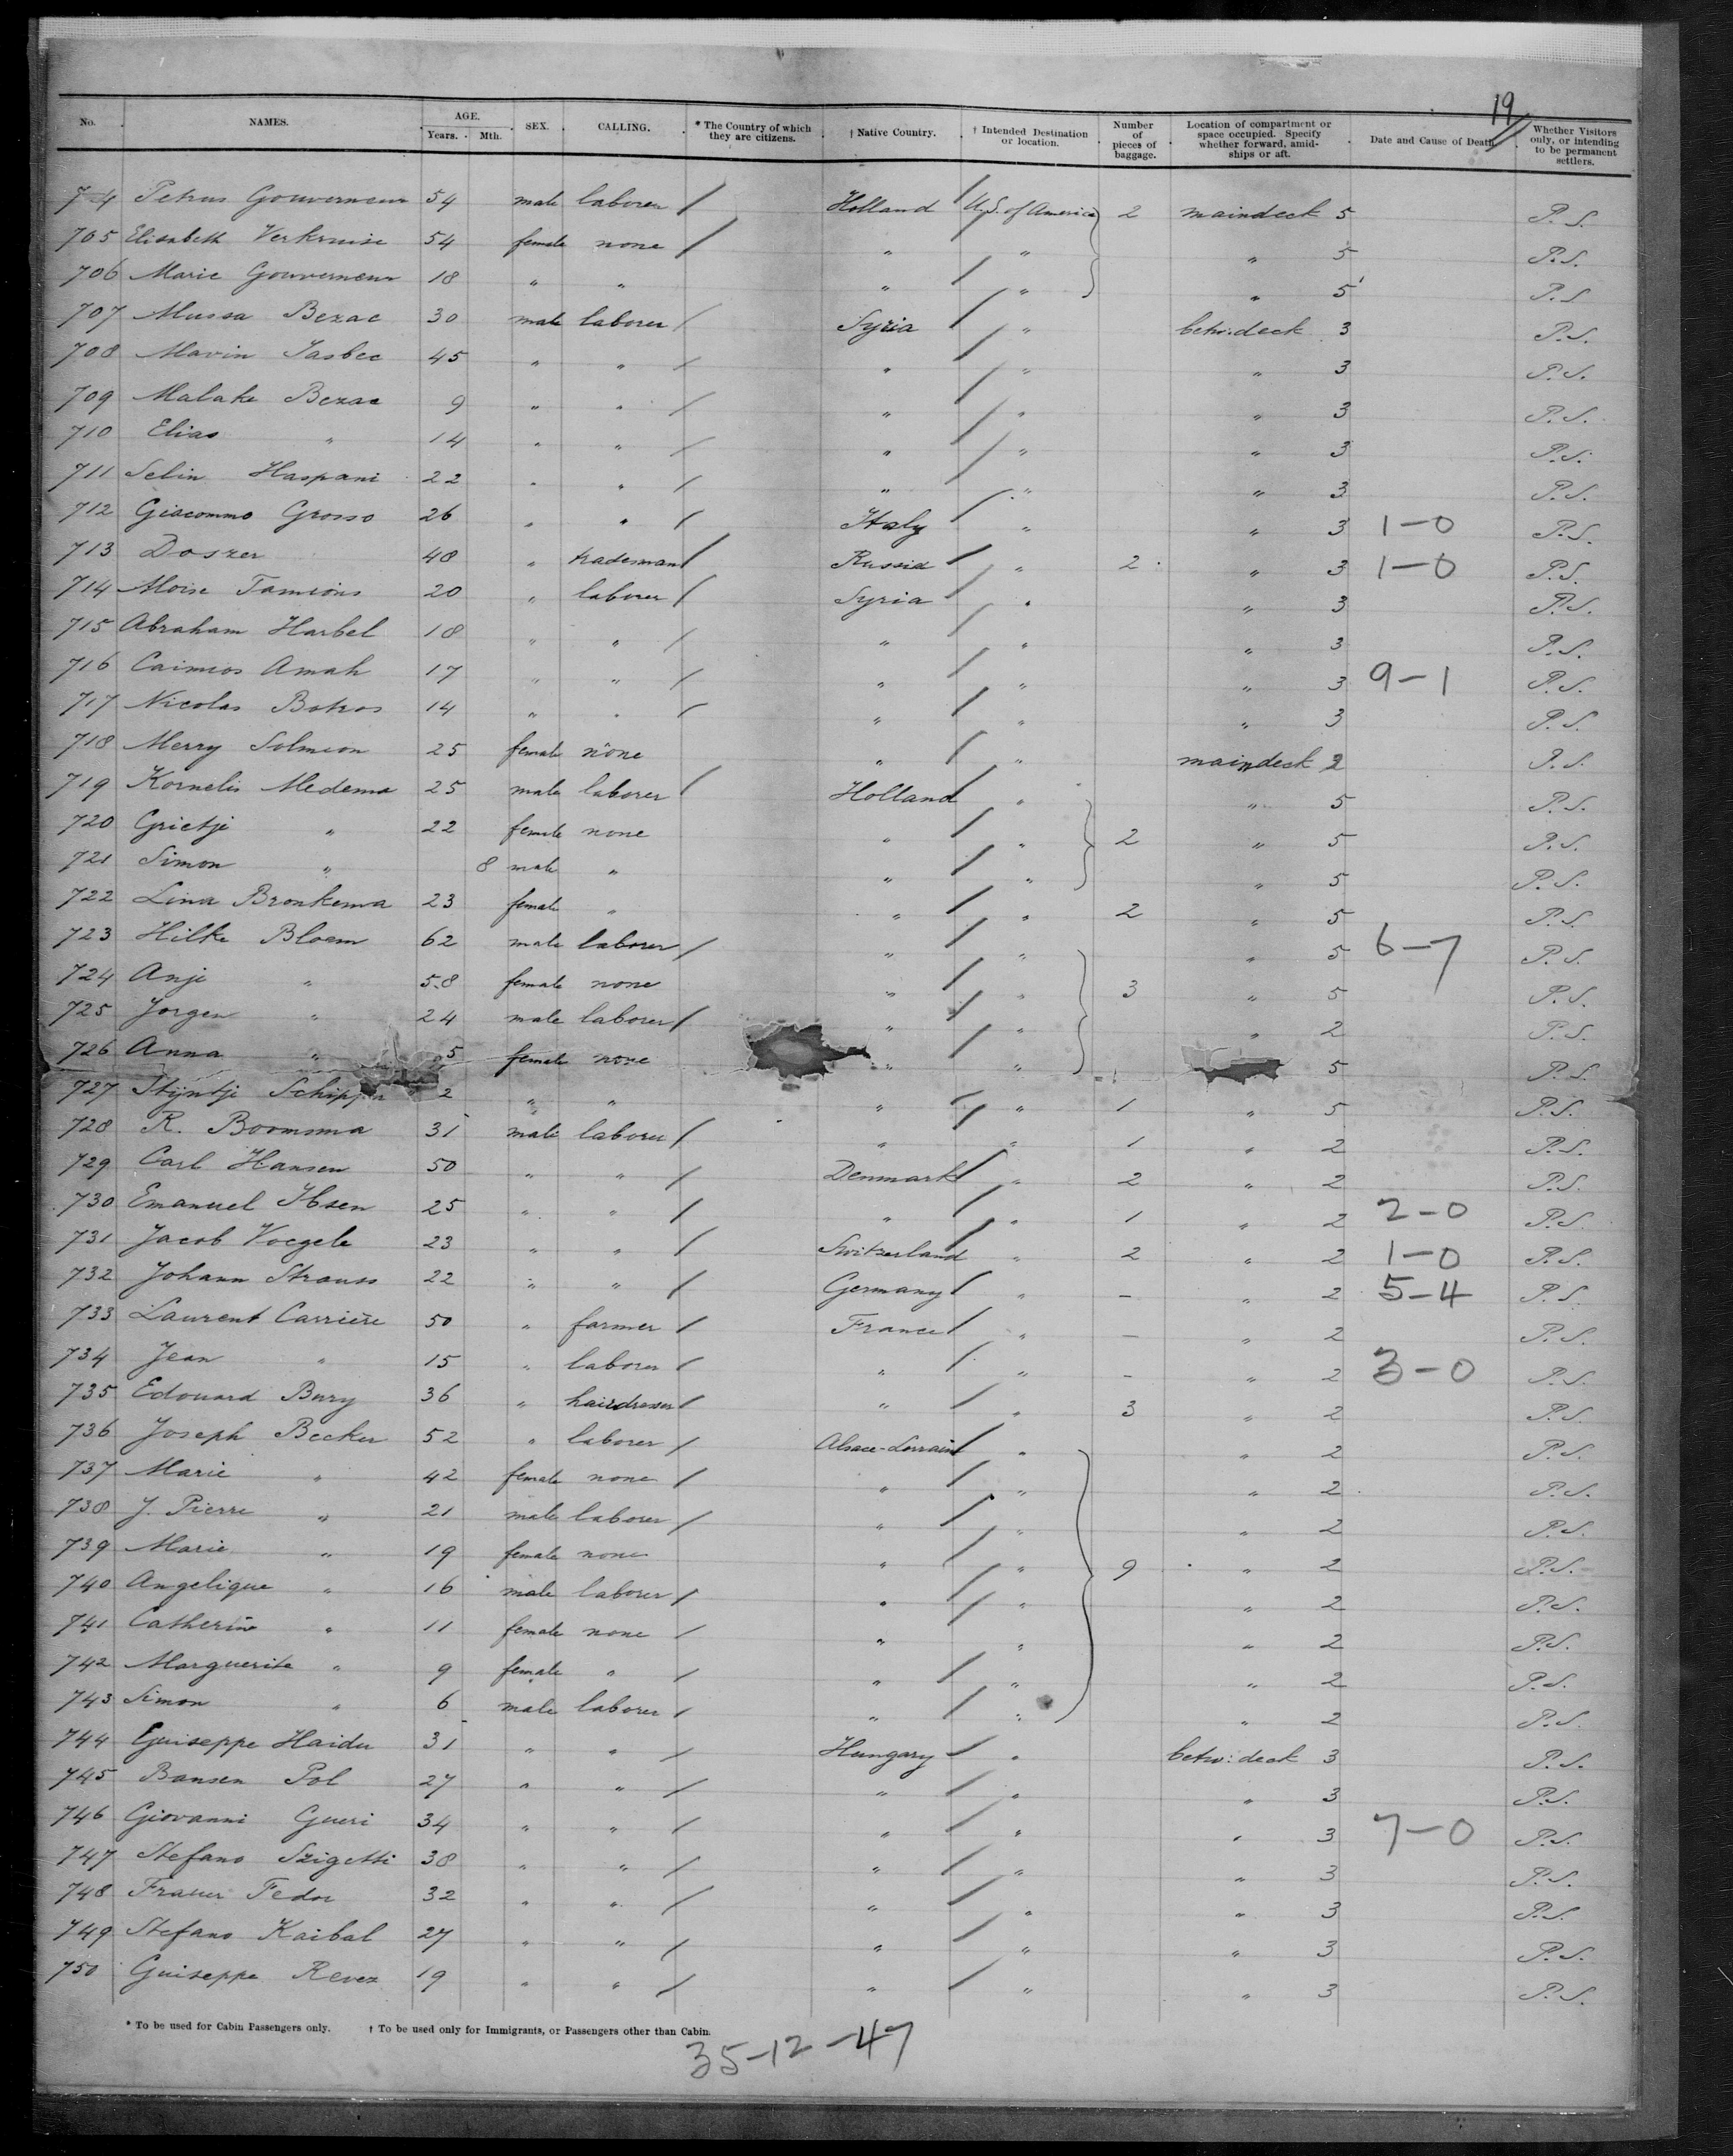 19
No. NAMES. AGE. Years. Mth. SEX. CALLING. * The Country of which they are citizens. † Native Country. † Intended Destination or location. Number of pieces of baggage. Location of compartment or space occupied. Specify whether forward, amidships or aft. Date and Cause of Death Whether Visitors only, or intending to be permanent settlers.
7 4 Petrus Gouverneur 54 male laborer / Holland / U.S. of America 2 maindeck 5 P.S.
705 Elisabeth Verkruise 54 female none / " " " 5 P.S.
706 Marie Gouverneur 18 " " " / " " 5 P.S
707 Mussa Bezac 30 male laborer / Syria / " betw: deck 3 P.S.
708 Mavin Jasbec 45 " " / " / " " 3 P.S.
709 Malake Bezac 9 " " / " / " " 3 P.S.
710 Elias " 14 " " / " / " " 3 P.S.
711 Selin Haspani 22 " " / " / " " 3 P.S.
712 Giacommo Grosso 26 " " / Italy / " " 3 1-0 P.S.
713 Doszer 48 " tradesman / Russia / " 2 " 3 1-0 P.S.
714 Moise Tamions 20 " laborer / Syria / " " 3 P.S.
715 Abraham Harbel 18 " " / " / " " 3 P.S.
716 Caimios Amah 17 " " / " / " " 3 9-1 P.S.
717 Nicolas Botros 14 " " / " / " " 3 P.S.
718 Merry Solmeon 25 female none " / " maindeck 2 P.S.
719 Kornelis Medema 25 male laborer / Holland / " " 5 P.S.
720 Grietje " 22 female none " / " 2 " 5 P.S.
721 Simon " 8 male " " / " " 5 P.S.
722 Lina Bronkema 23 female " " / " 2 " 5 P.S.
723 Hilke Bloem 62 male laborer / " / " " 5 6-7 P.S.
724 Anje " 58 female none " / " 3 " 5 P.S.
725 Jorgen " 24 male laborer / " / " " 2 P.S.
726 Anna " 5 female none " / " 5 P.S.
727 Stijntje Schipper 2 " " " / " 1 " 5 P.S.
728 R. Boomsma 31 male laborer / " / " 1 " 2 P.S.
729 Carl Hansen 50 " " / Denmark / " 2 " 2 P.S.
730 Emanuel Ibsen 25 " " / " / " 1 " 2 2-0 P.S.
731 Jacob Voegele 23 " " / Switzerland / " 2 " 2 1-0 P.S.
732 Johann Strauss 22 " " / Germany / " - " 2 5-4 P.S.
733 Laurent Carrière 50 " farmer / France / " - " 2 P.S.
734 Jean " 15 " laborer / " / " - " 2 3-0 P.S.
735 Edouard Bury 36 " hairdresser / " / " 3 " 2 P.S.
736 Joseph Becker 52 " laborer / Alsace-Lorraine / " " 2 P.S.
737 Marie " 42 female none / " / " " 2 P.S.
738 J. Pierre " 21 male laborer / " / " " 2 P.S.
739 Marie " 19 female none " / " 9 " 2 P.S.
740 Angelique " 16 male laborer / " / " " 2 P.S.
741 Catherine " 11 female none / " " " 2 P.S.
742 Marguerite " 9 female " / " / " " 2 P.S.
743 Simon " 6 male laborer / " / " " 2 P.S.
744 Guiseppe Haidu 31 " " / Hungary / " betw: deck 3 P.S.
745 Bansen Pol 27 " " / " / " " 3 P.S.
746 Giovanni Gueri 34 " " / " / " " 3 7-0 P.S.
747 Stefano Szigetti 38 " " / " / " " 3 P.S.
748 Fedor 32 " " / " / " " 3 P.S.
749 Stefano Kaibal 27 " " / " / " " 3 P.S.
750 Guiseppe Revez 19 " " / " / " " 3 P.S.
* To be used for Cabin Passengers only. † To be used only for Immigrants, or Passengers other than Cabin.
35-12-47